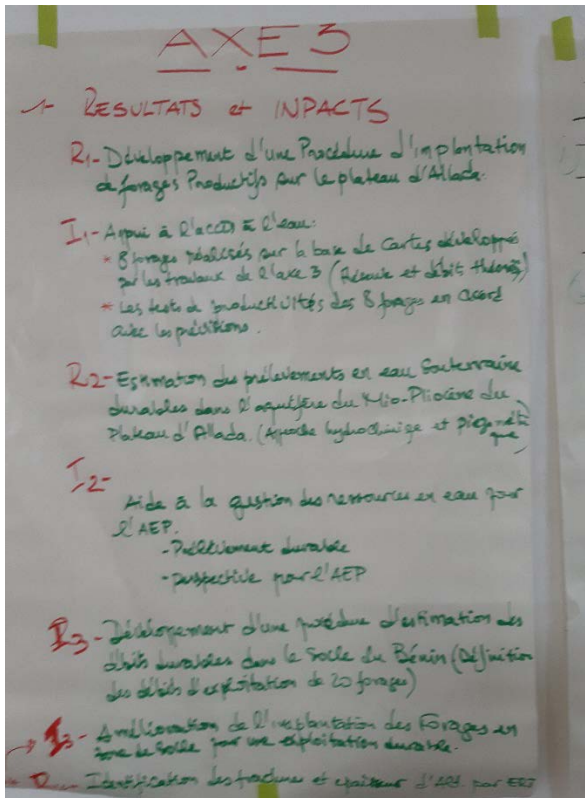 AXE 3
1- RESULTATS et INPACTS
R1- Développement d'une Procédure d'implantation
de forages Productifs sur le plateau d'Allada.
I1- Appui à l'accès à l'eau:
* 8 forages réalisés sur la base de Cartes développés
par les travaux de l'axe 3 (Réservoir et débit théorie)
* Les tests de productivités des 8 forages en accord
avec les prévisions.
R2- Estimation des prélèvements en eau Souterraine
durables dans l'aquifère du Mio-Pliocène du
Plateau d'Allada. (Approche hydrochimique et piézométrique)
I2-
Aide à la gestion des ressources en eau pour
l'AEP.
- Prélèvement durable
- perspective pour l'AEP
R3- Développement d'une procédure d'estimation des
débits durables dans le Socle du Bénin (Définition
des débits d'exploitation de 20 forages)
I3- Amélioration de l'implantation des Forages en
zone de Socle pour une exploitation durable.
Identification des fractures et épaisseur d'Alt. par ERT